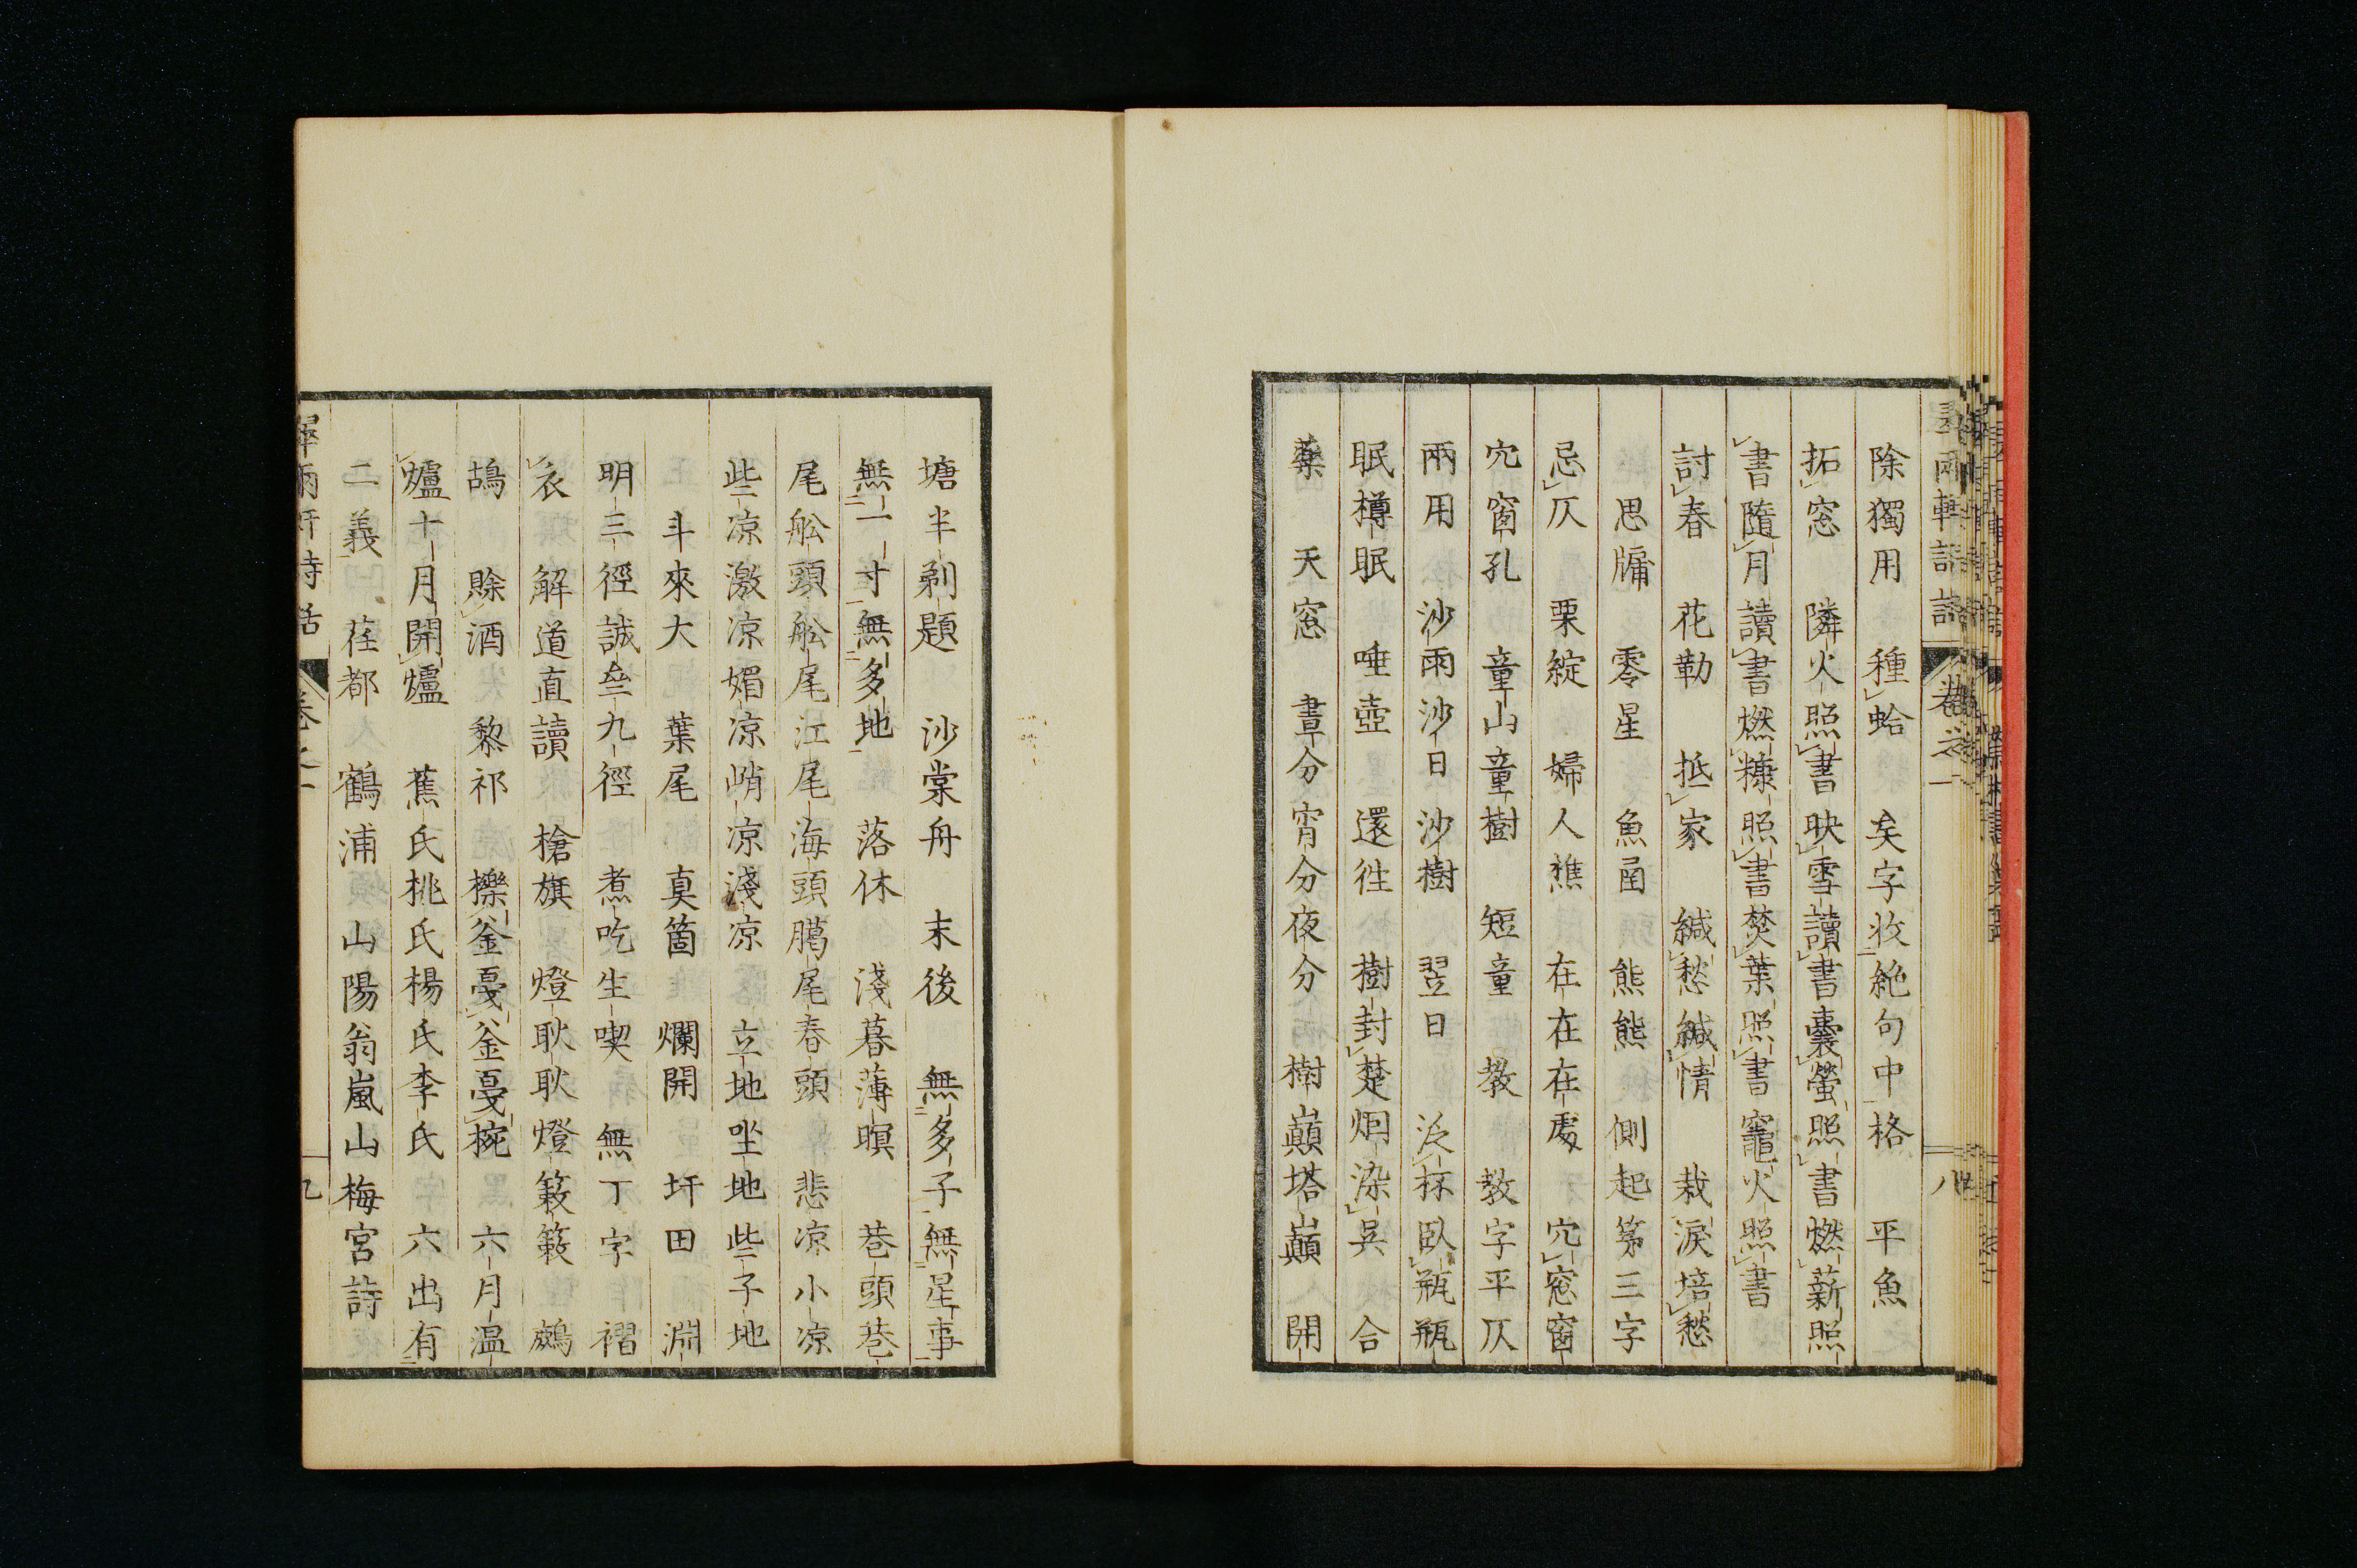 除獨用　種蛤　矣字收絶句中格　平魚
拓窓　隣火照書映雪讀書嚢螢照書燃薪照
書隨月讀書燃糠照書焚葉照書竈火照書
討春　花勒　抵家　緘愁緘情　栽涙培愁
思牗　零星　魚㽃　熊熊　側起第三字
忌仄　栗綻　婦人樵　在在在處　穴窓窗
穴窗孔　童山童樹　短童　教　教字平仄
兩用　沙雨沙日沙樹　翌日　泛杯臥瓶瓶
眠樽眠　唾壺　還徃　樹封楚烟染吳　合
藥　天窓　晝分宵分夜分　樹巓塔巓　開
塘半剃題　沙棠舟　末後　無多子無星事
無一寸無多地　落休　淺暮薄暝　巷頭巷
尾舩頭舩尾江尾海頭臈尾春頭　悲凉小凉
些凉激凉媚凉峭凉淺凉　立地坐地些子地
斗來大　葉尾　真箇　爛開　圩田　淵
明三徑誠叄九徑　煮吃生喫　無丁字　褶
衣　解道直讀　槍旗　燈耿耿燈簌簌　鷓
鴣　賖酒　黎祁　擽釜戞釜戞椀　六月温
爐十月開爐　蕉氏桃氏楊氏李氏　六出有
二義　荏都　鶴浦　山陽翁嵐山梅宮詩